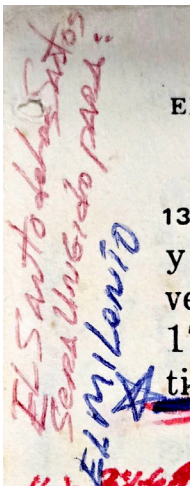 EL SANTO de los SANTOS
Sera UNGIDO PARA:
EL MILENIO
E
13
y
ve
1
ti